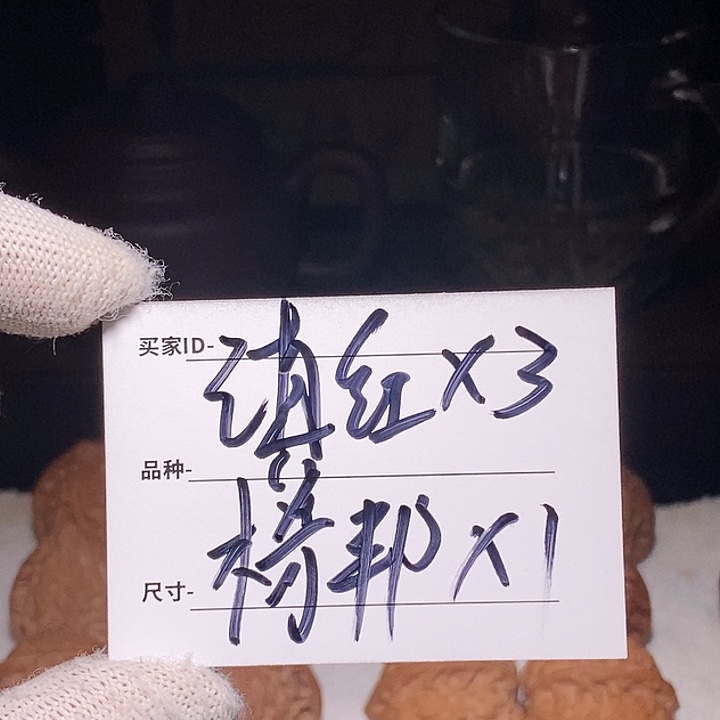 买家ID-
滇红x3
品种-
榜邦x1
尺寸-